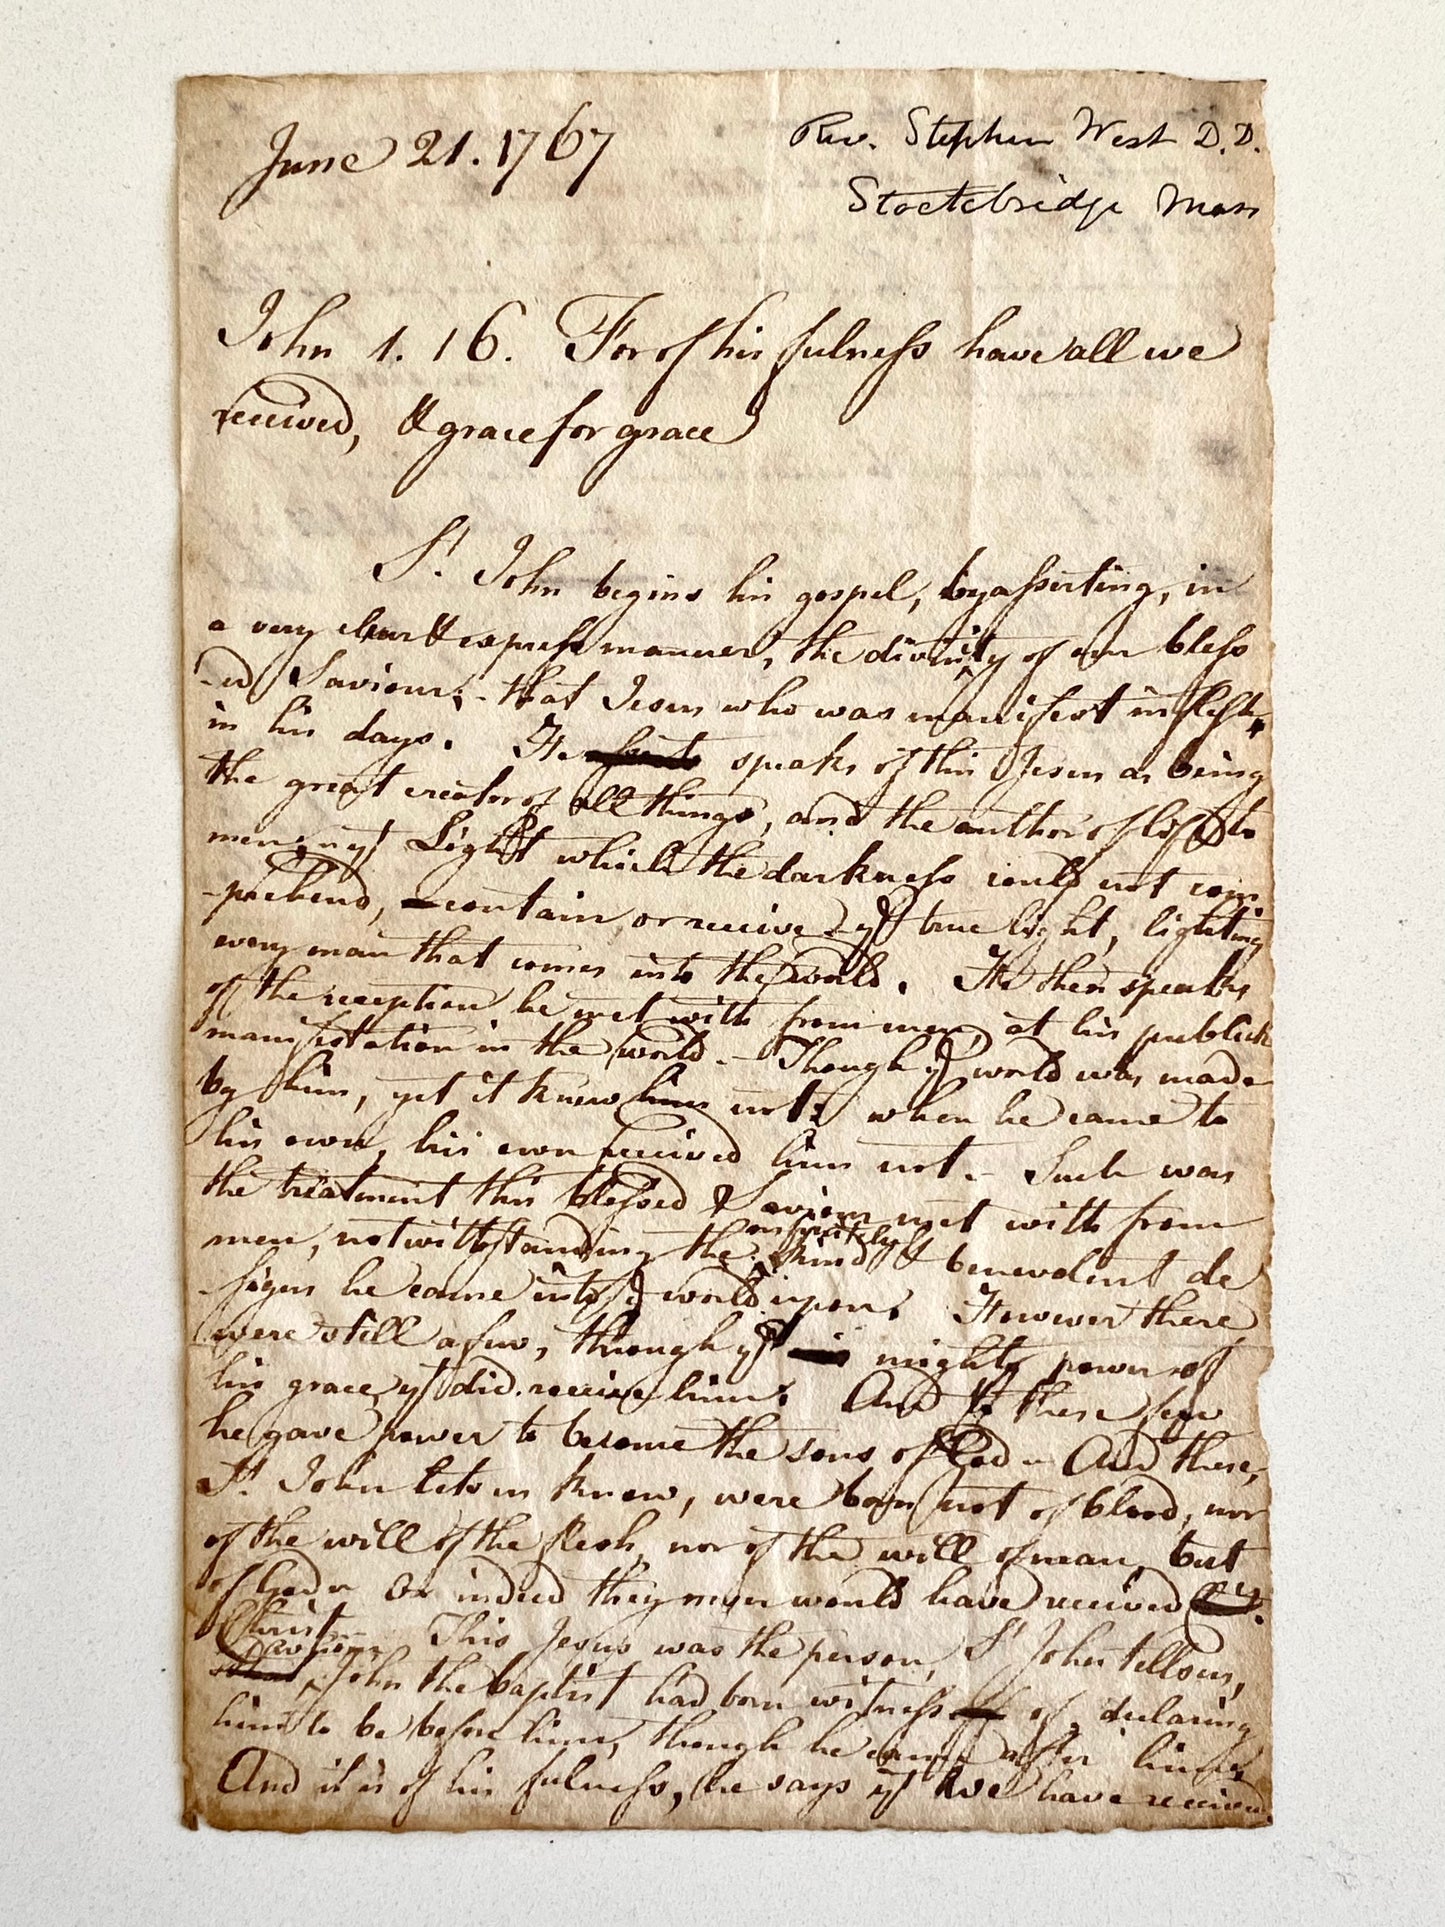 June 21. 1767
Rev. Stephen West D.D.
Stockbridge Mass
John 1. 16. For of his fulness have all we
received, & grace for grace
St. John begins his gospel, by asserting, in
a very clear & express manner, the divinity of our bless
-ed Saviour; - that Jesus who was manifest in flesh
in his days. He speaks of this Jesus as being
the great creator of all things, and the author of life to
men; - yt Light which the darkness could not com
-prehend, contain, or receive; yt true light, lighting
every man that comes into the world. He then speaks
of the reception he met with from men, at his publick
manifestation in the world. - Though ye world was made
by him, yet it knew him not: when he came to
his own, his own received him not. - Such was
the treatment this blessed Saviour met with from
men, notwithstanding the infinitely kind & benevolent de
-sign he came into ye world upon. However there
were still a few, through ye mighty power of
his grace, yt did receive him: And to these few
he gave power to become the sons of God. And these,
St. John lets us know, were born not of blood, nor
of the will of the flesh, nor of the will of man, but
of God. Or indeed they never would have received
Christ. This Jesus was the person, St John tells us,
Saviour John the baptist had born witness of, declaring
him to be before him, though he came after him;
And it is of his fulness, he says yt we have received